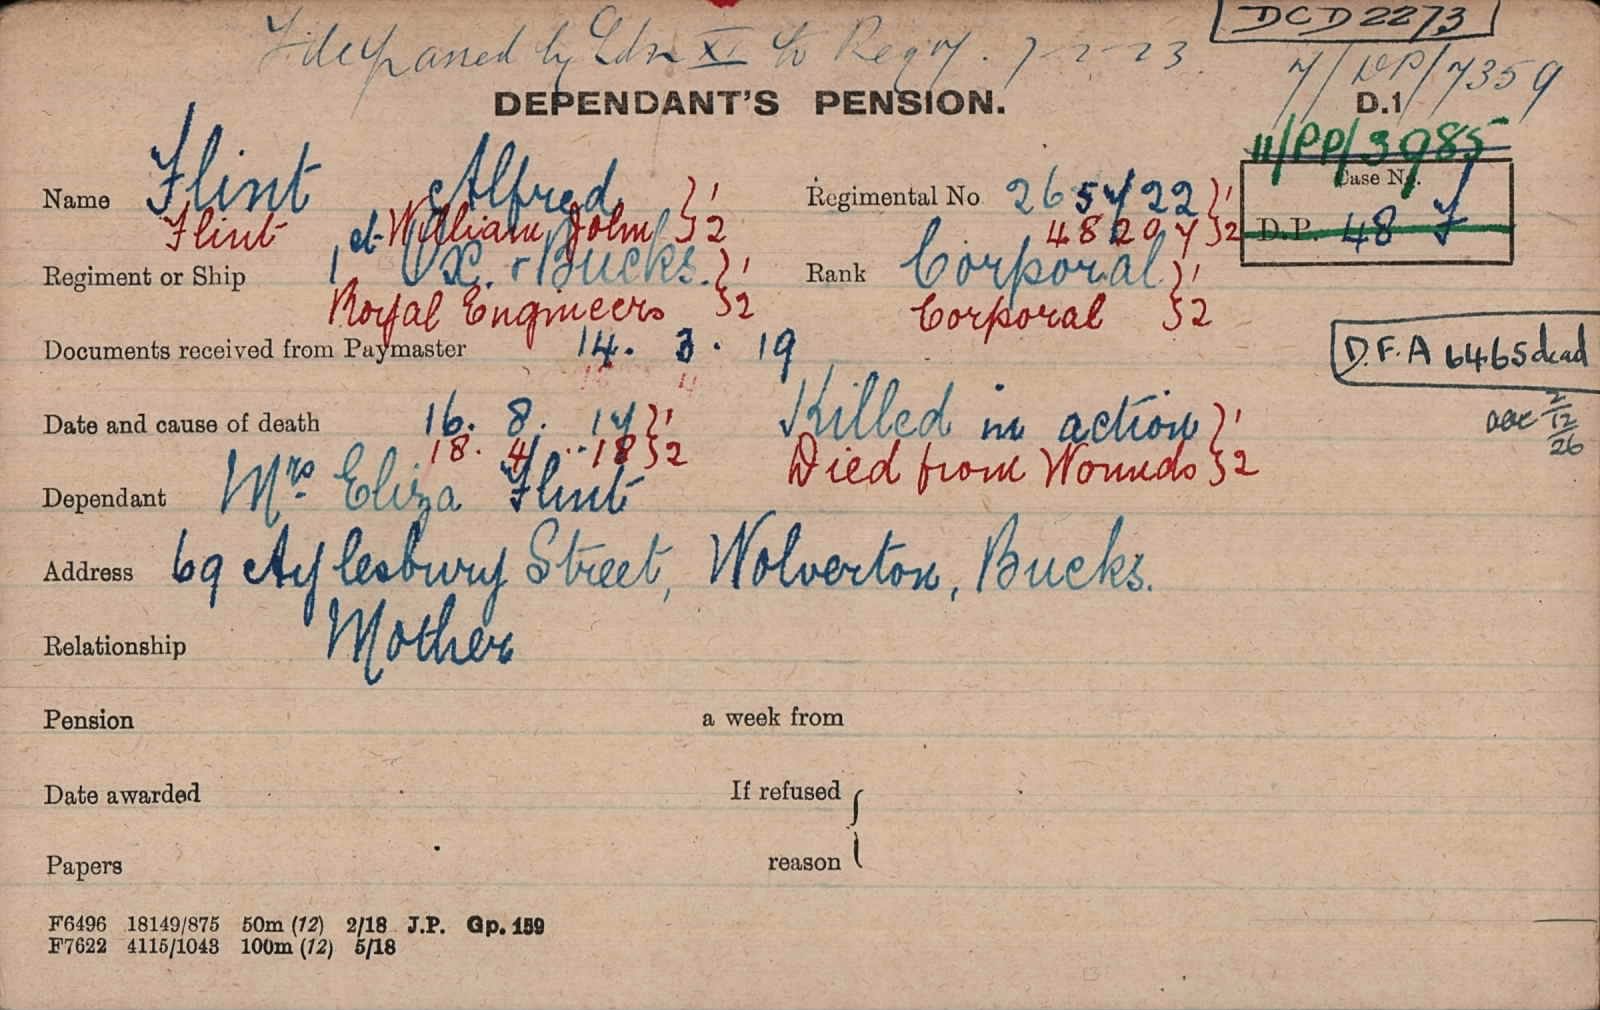 File passed by Ldn XI to Regy. 7-2-23
DCD 2273
7/DP/7359
DEPENDANT'S PENSION.
D.1
11/PP/3985
Name Flint Alfred }1 Regimental No 265722 }1 Case No.
Flint William John }2 48207 }2 D.P. 48 F
Regiment or Ship 1st Ox. & Bucks. }1 Rank Corporal }1
Royal Engineers }2 Corporal }2
Documents received from Paymaster 14. 3. 19
D.F.A 6465 dead
2/12/26
Date and cause of death 16. 8. 17 }1 Killed in action }1
18. 4. 18 }2 Died from Wounds }2
Dependant Mrs Eliza Flint
Address 69 Aylesbury Street, Wolverton, Bucks.
Relationship Mother
Pension a week from
Date awarded If refused
Papers reason
F6496 18149/875 50m (12) 2/18 J.P. Gp. 159
F7622 4115/1043 100m (12) 5/18